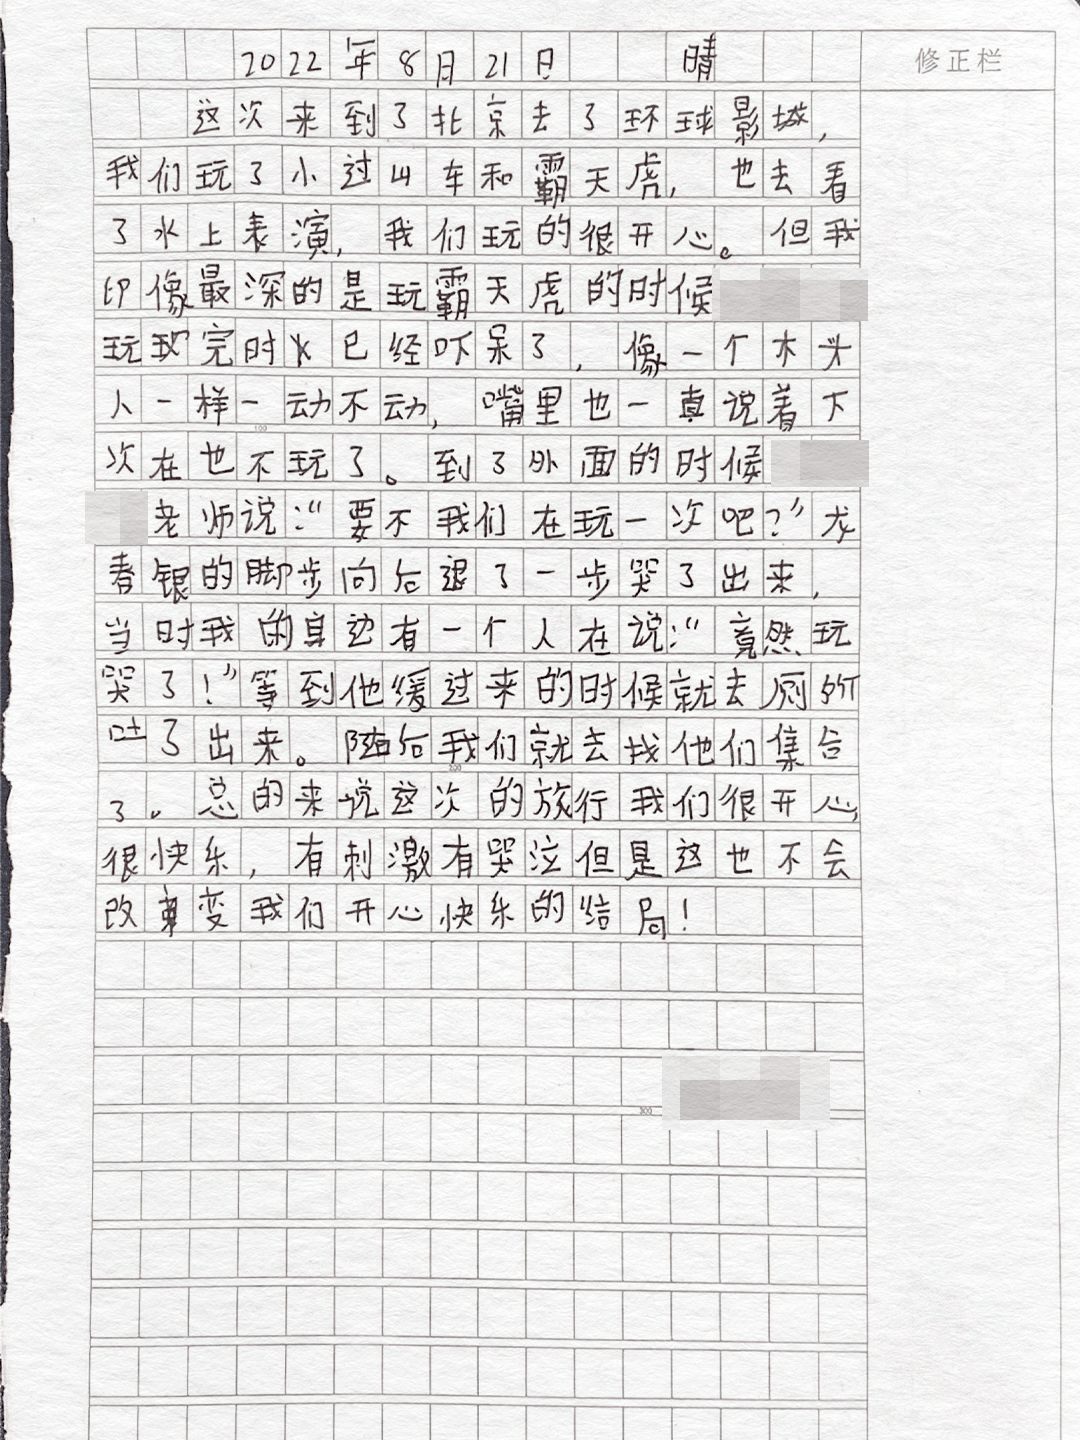 2022年8月21日 晴
修正栏
这次来到了北京去了环球影城，
我们玩了小过山车和霸天虎，也去看
了水上表演，我们玩的很开心。但我
印像最深的是玩霸天虎的时候
玩完时已经吓呆了，像一个木头
人一样一动不动，嘴里也一真说着下
100
次在也不玩了。到了外面的时候
老师说："要不我们在玩一次吧？"龙
春银的脚步向后退了一步哭了出来，
当时我的身边有一个人在说："竟然玩
哭了！"等到他缓过来的时候就去厕所
吐了出来。随后我们就去找他们集合
200
了。总的来说这次的旅行我们很开心，
很快乐，有刺激有哭泣但是这也不会
改变我们开心快乐的结局！
300